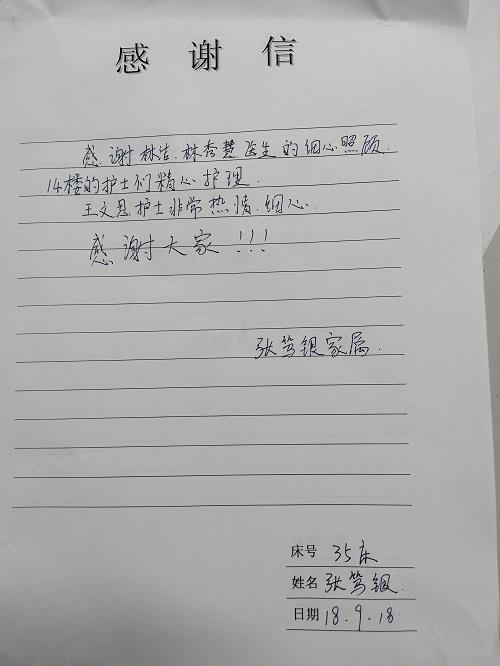 感 谢 信
感谢林洁、林秀慧医生的细心照顾.
14楼的护士们精心护理.
王文思护士非常热情.细心.
感谢大家!!!
张笃银家属.
床号 35床
姓名 张笃银.
日期 18.9.18.